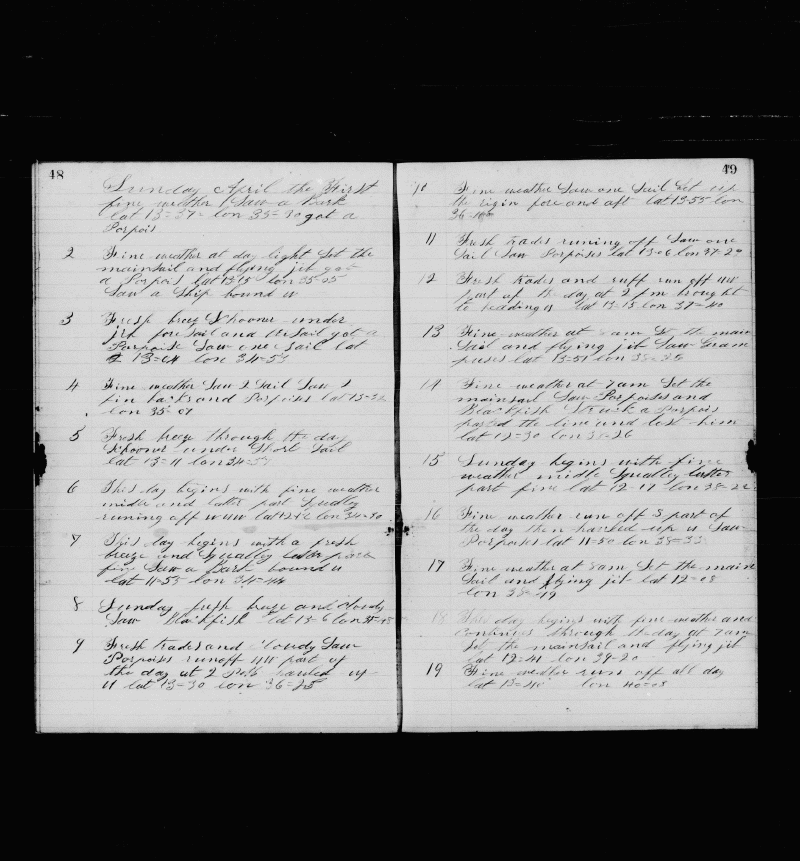 48
Sunday April the First
fine weather Saw a Bark
lat 13=37= lon 35=30 got a
Porpois
2 Fine weather at day light Set the
mainsail and flying jib got
a Porpois lat 13=15 lon 35=05
Saw a Ship bound
3 Fresh breze Schooner under
jib foresail and Saw one Sail lat
13=04 lon 34=53
4 Fine weather Saw 2 Sail Saw 2
fin backs and Porpoises lat 13=
lon 35=07
5 Fresh breze through the day
Schooner under Short Sail
lat 13=11 lon 34=
6 This day begins with fine weather
midle and later part Squally
runing off lat lon 34=
7 This day begins with a fresh
breze and Squally later part
fine Saw a Bark bound
lat 11=55 lon 34=44
8 Sunday fresh breze and cloudy
Saw Blackfish lat 13=6 lon
9 Fresh trades and cloudy Saw
Porpoises run off part of
the day at 2 hauled up
lat 13=30 lon 36=25
49
10 Fine weather Saw one Sail Set up
the rigin fore and aft lat 13=55 lon
36=
11 Fresh trades runing off Saw one
Sail Saw Porpoises lat 13=6 lon 37=20
12 Fresh trades and ruff run off
part of the day at 2 pm brought
to heading lat 13=13 lon 37=40
13 Fine weather at am Set the main
Sail and flying jib Saw Gram
puses lat 13=51 lon
14 Fine weather at 7 am Set the
mainsail Saw Porpoises and
Blackfish Struck a Porpois
parted the line and lost him
lat 12=30 lon 38=26
15 Sunday begins with fine
weather midle Squalley latter
part fine lat 12=17 lon 38=22
16 Fine weather run off 3 part of
the day then hauled up Saw
Porposes lat 11=50 lon 38=33
17 Fine weather at 8 am Set the main
Sail and flying jib lat 12=08
lon 38=19
18 This day begins with fine weather and
continues through the day at 7 am
Set the mainsail and flying jib
lat 12=41 lon 39=20
19 Fine weather run off all day
lat 13=40 lon 40=08